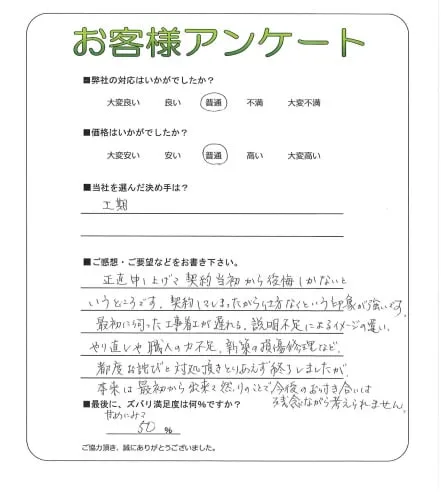 お客様アンケート
■弊社の対応はいかがでしたか?
大変良い 良い 普通 不満 大変不満
■価格はいかがでしたか?
大変安い 安い 普通 高い 大変高い
■当社を選んだ決め手は?
工期
■ご感想・ご要望などをお書き下さい。
正直申し上げて契約当初から後悔しかないと
いうところです。契約してしまったから仕方なくという印象が強いです。
最初に伺った工事着工が遅れる、説明不足によるイメージの違い、
やり直しや職人の力不足、新築の損傷修理など、
都度お詫びと対処頂きとりあえず終了しましたが、
本来は最初から出来て然りのことで今後のお付き合いは
残念ながら考えられません。
■最後に、ズバリ満足度は何%ですか?
甘めにみて
50 %
ご協力頂き、誠にありがとうございました。